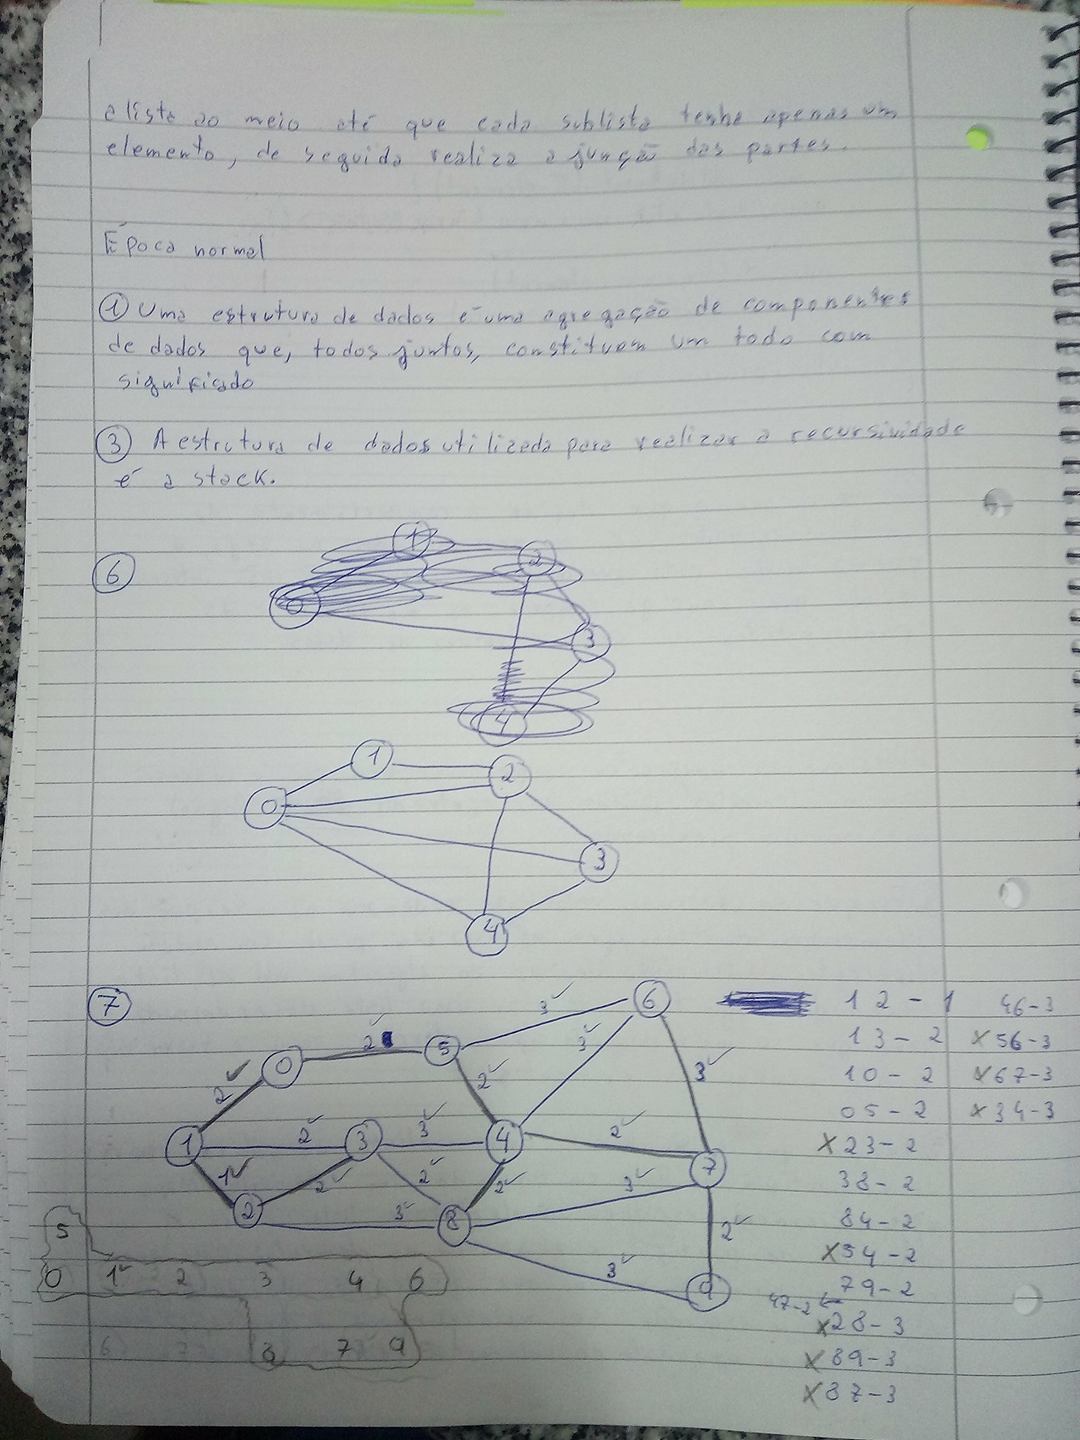 a lista ao meio até que cada sublista tenha apenas um
elemento, de seguida realiza a junção das partes.
Época normal
① Uma estrutura de dados é uma agregação de componentes
de dados que, todos juntos, constituem um todo com
significado
③ A estrutura de dados utilizada para realizar a recursividade
é a stack.
⑥
1
2
0
3
4
1
2
0
3
4
⑦
6
3 ✓
0
2 ✓
5
3 ✓
2 ✓
2 ✓
3 ✓
1
2 ✓
3
3 ✓
4
2 ✓
7
1 ✓
2 ✓
2 ✓
2 ✓
3 ✓
2
3 ✓
8
2 ✓
3 ✓
9
5
0 1 2 3 4 6
8 7 9
1 2 - 1
1 3 - 2
1 0 - 2
0 5 - 2
x 2 3 - 2
3 8 - 2
8 4 - 2
x 5 4 - 2
7 9 - 2
47-2 ←
x 2 8 - 3
x 8 9 - 3
x 8 7 - 3
46-3
x 56-3
x 67-3
x 34-3